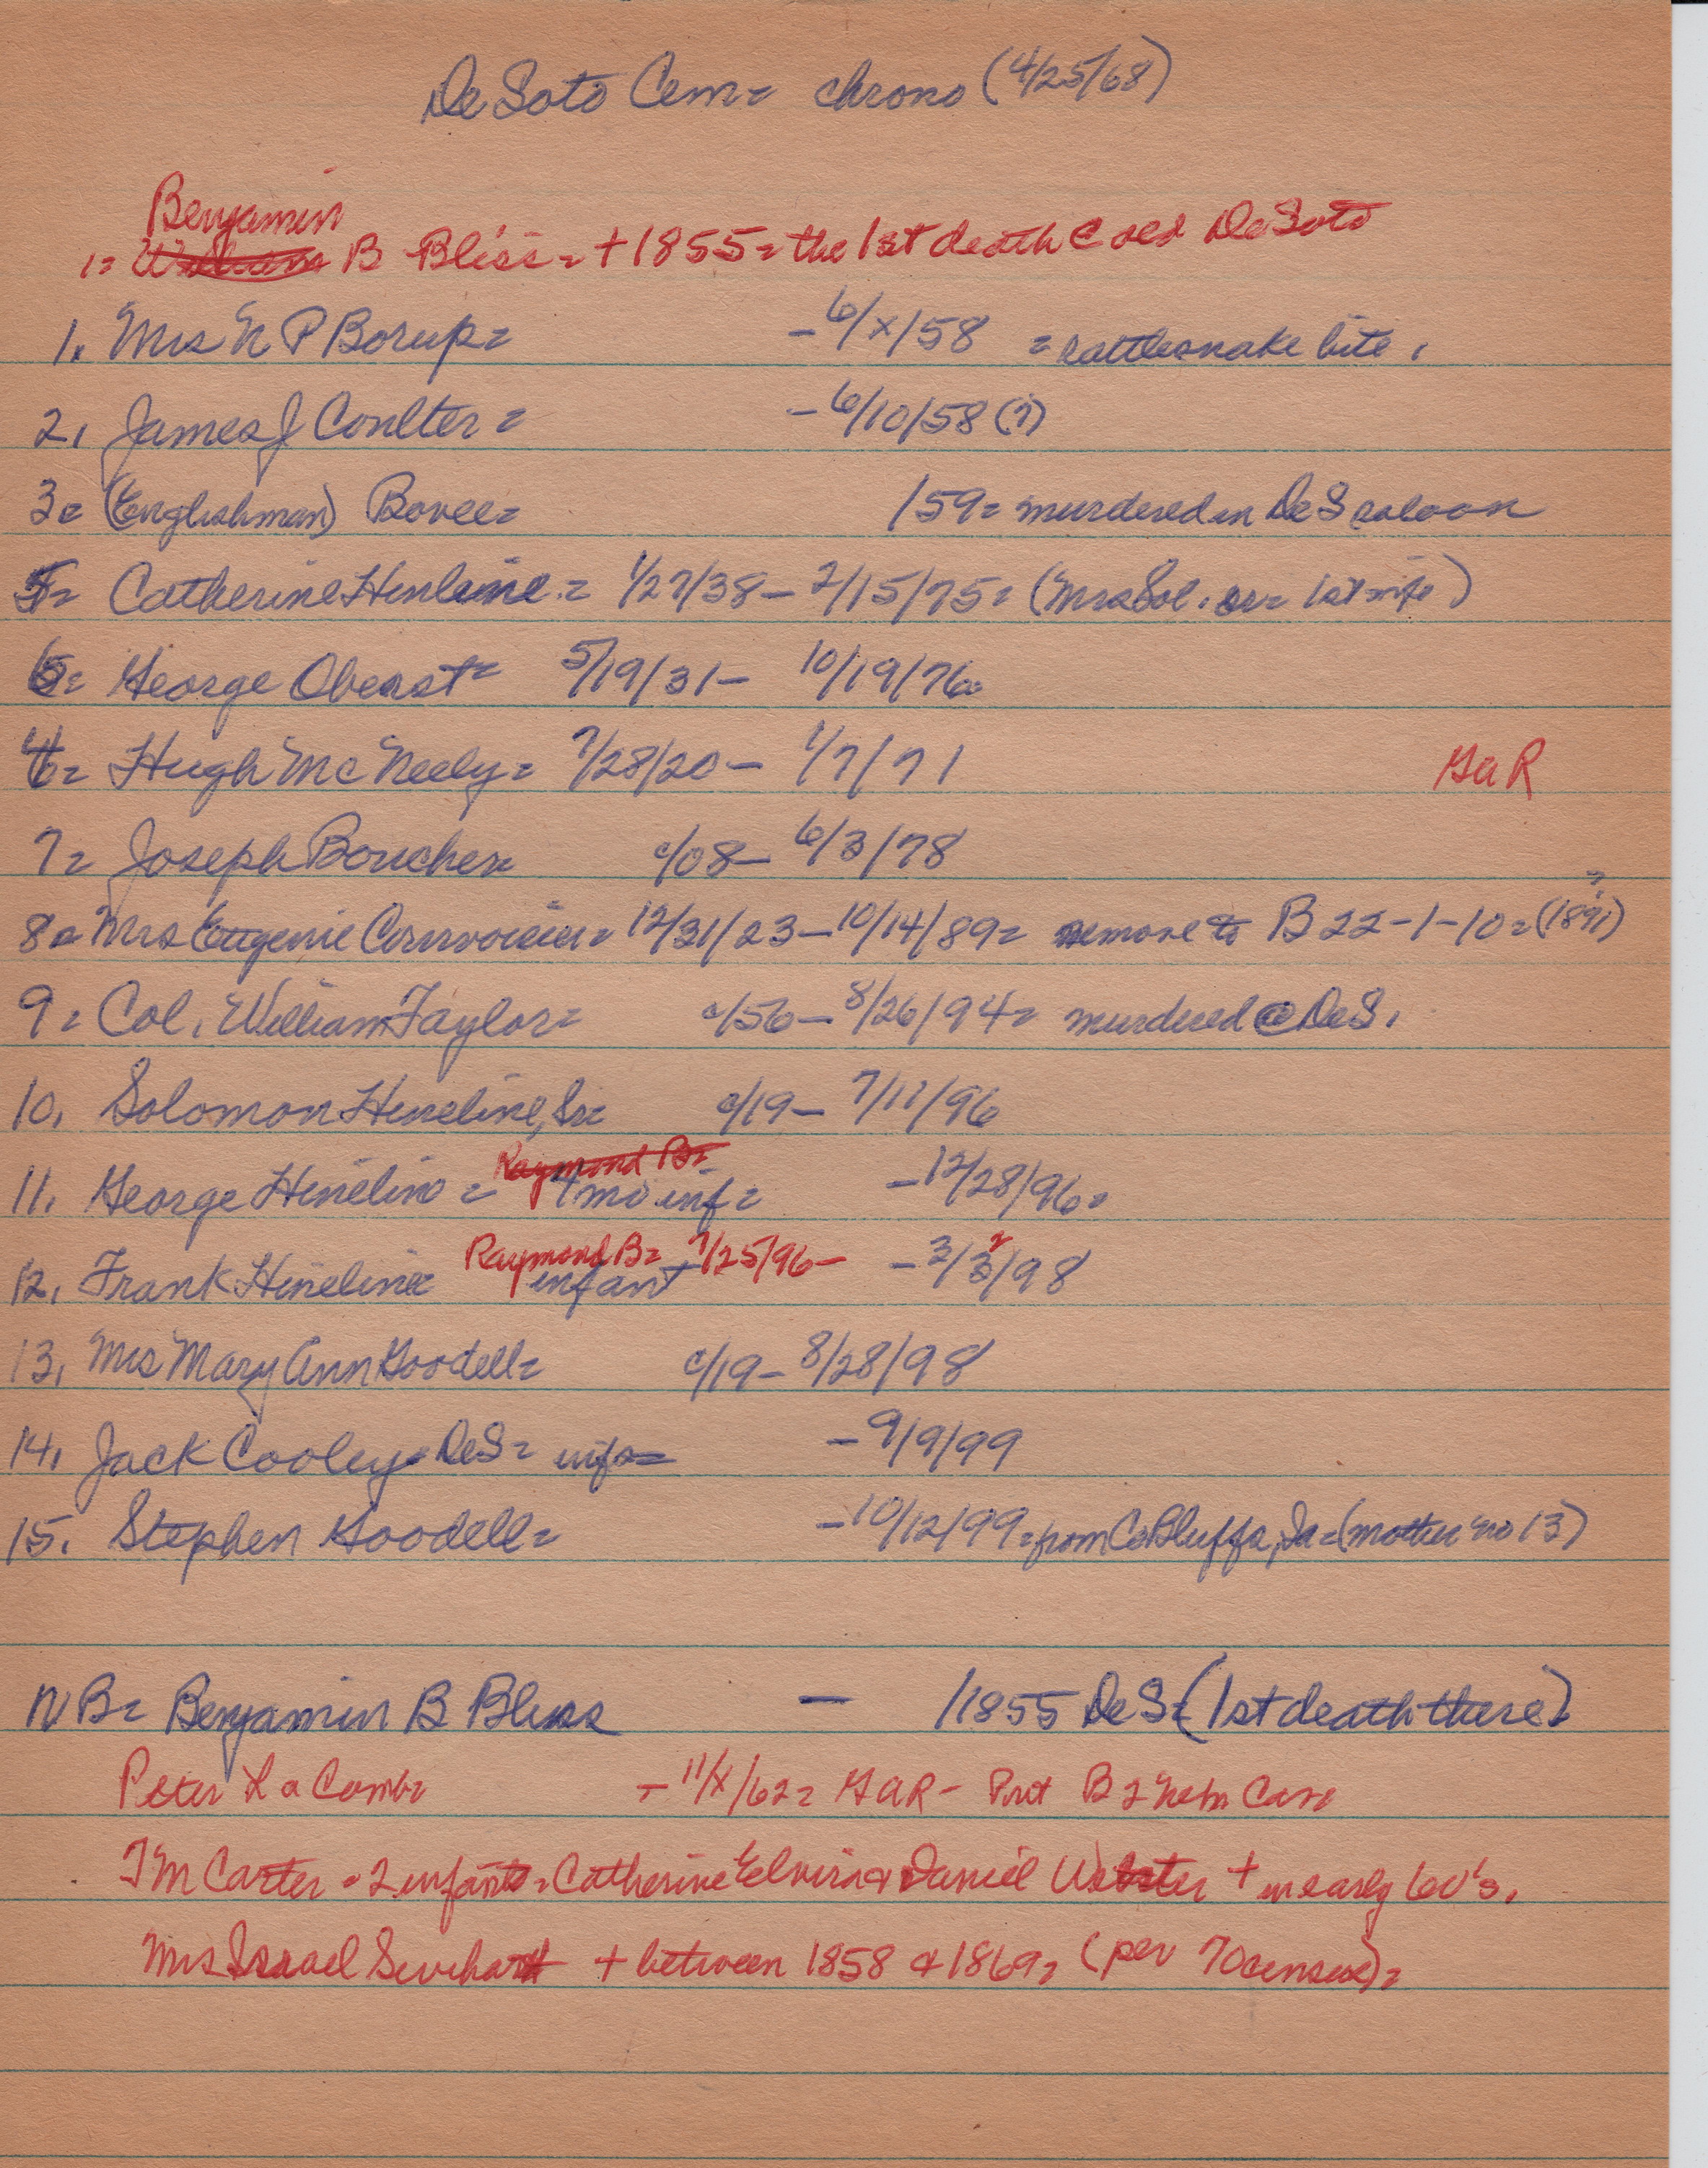 De Soto Cem= chrono (4/25/68)
Benjamin
1= William B Bliss= +1855= the 1st death @ old DeSoto
1. Mrs N P Borup= -6/x/58 = rattlesnake bite.
2. James J Coulter= -6/10/58 (?)
3= (Englishman) Bovee= /59= murdered in DeS saloon
5= Catherine Hinline= 1/27/38- 2/15/75= (Mrs Sol. sr= 1st wife)
6= George Oberst= 5/19/31- 10/19/76=
4= Hugh McNeely= 7/28/20- 1/7/71 GAR
7= Joseph Boucher= c/08- 6/3/78
8= Mrs Eugenie Cornvoisier= 12/31/23-10/14/89= remove to B 22-1-10= (1891)?
9= Col. William Taylor= c/56-8/26/94= murdered @ DeS.
10. Solomon Hineline, Sr= c/19- 7/11/96
Raymond B=
11. George Hineline= 4mo inf= -12/28/96=
Raymond B= 7/25/96-
12. Frank Hineline infant -3/2/98
13. Mrs Mary Ann Goodell= c/19- 8/28/98
14. Jack Cooley= DeS= info= -9/9/99
15. Stephen Goodell= -10/12/99= from Co Bluffs, Ia= (mother no 13)
NB= Benjamin B Bliss - /1855 DeS= (1st death there)
Peter La Comb= -11/x/62= GAR- Pvt B 2 Neb Cav
T M Carter - 2 infants= Catherine Elvira & Daniel Webster + in early 60's.
Mrs Israel + between 1858 & 1869= (per 70 census)=